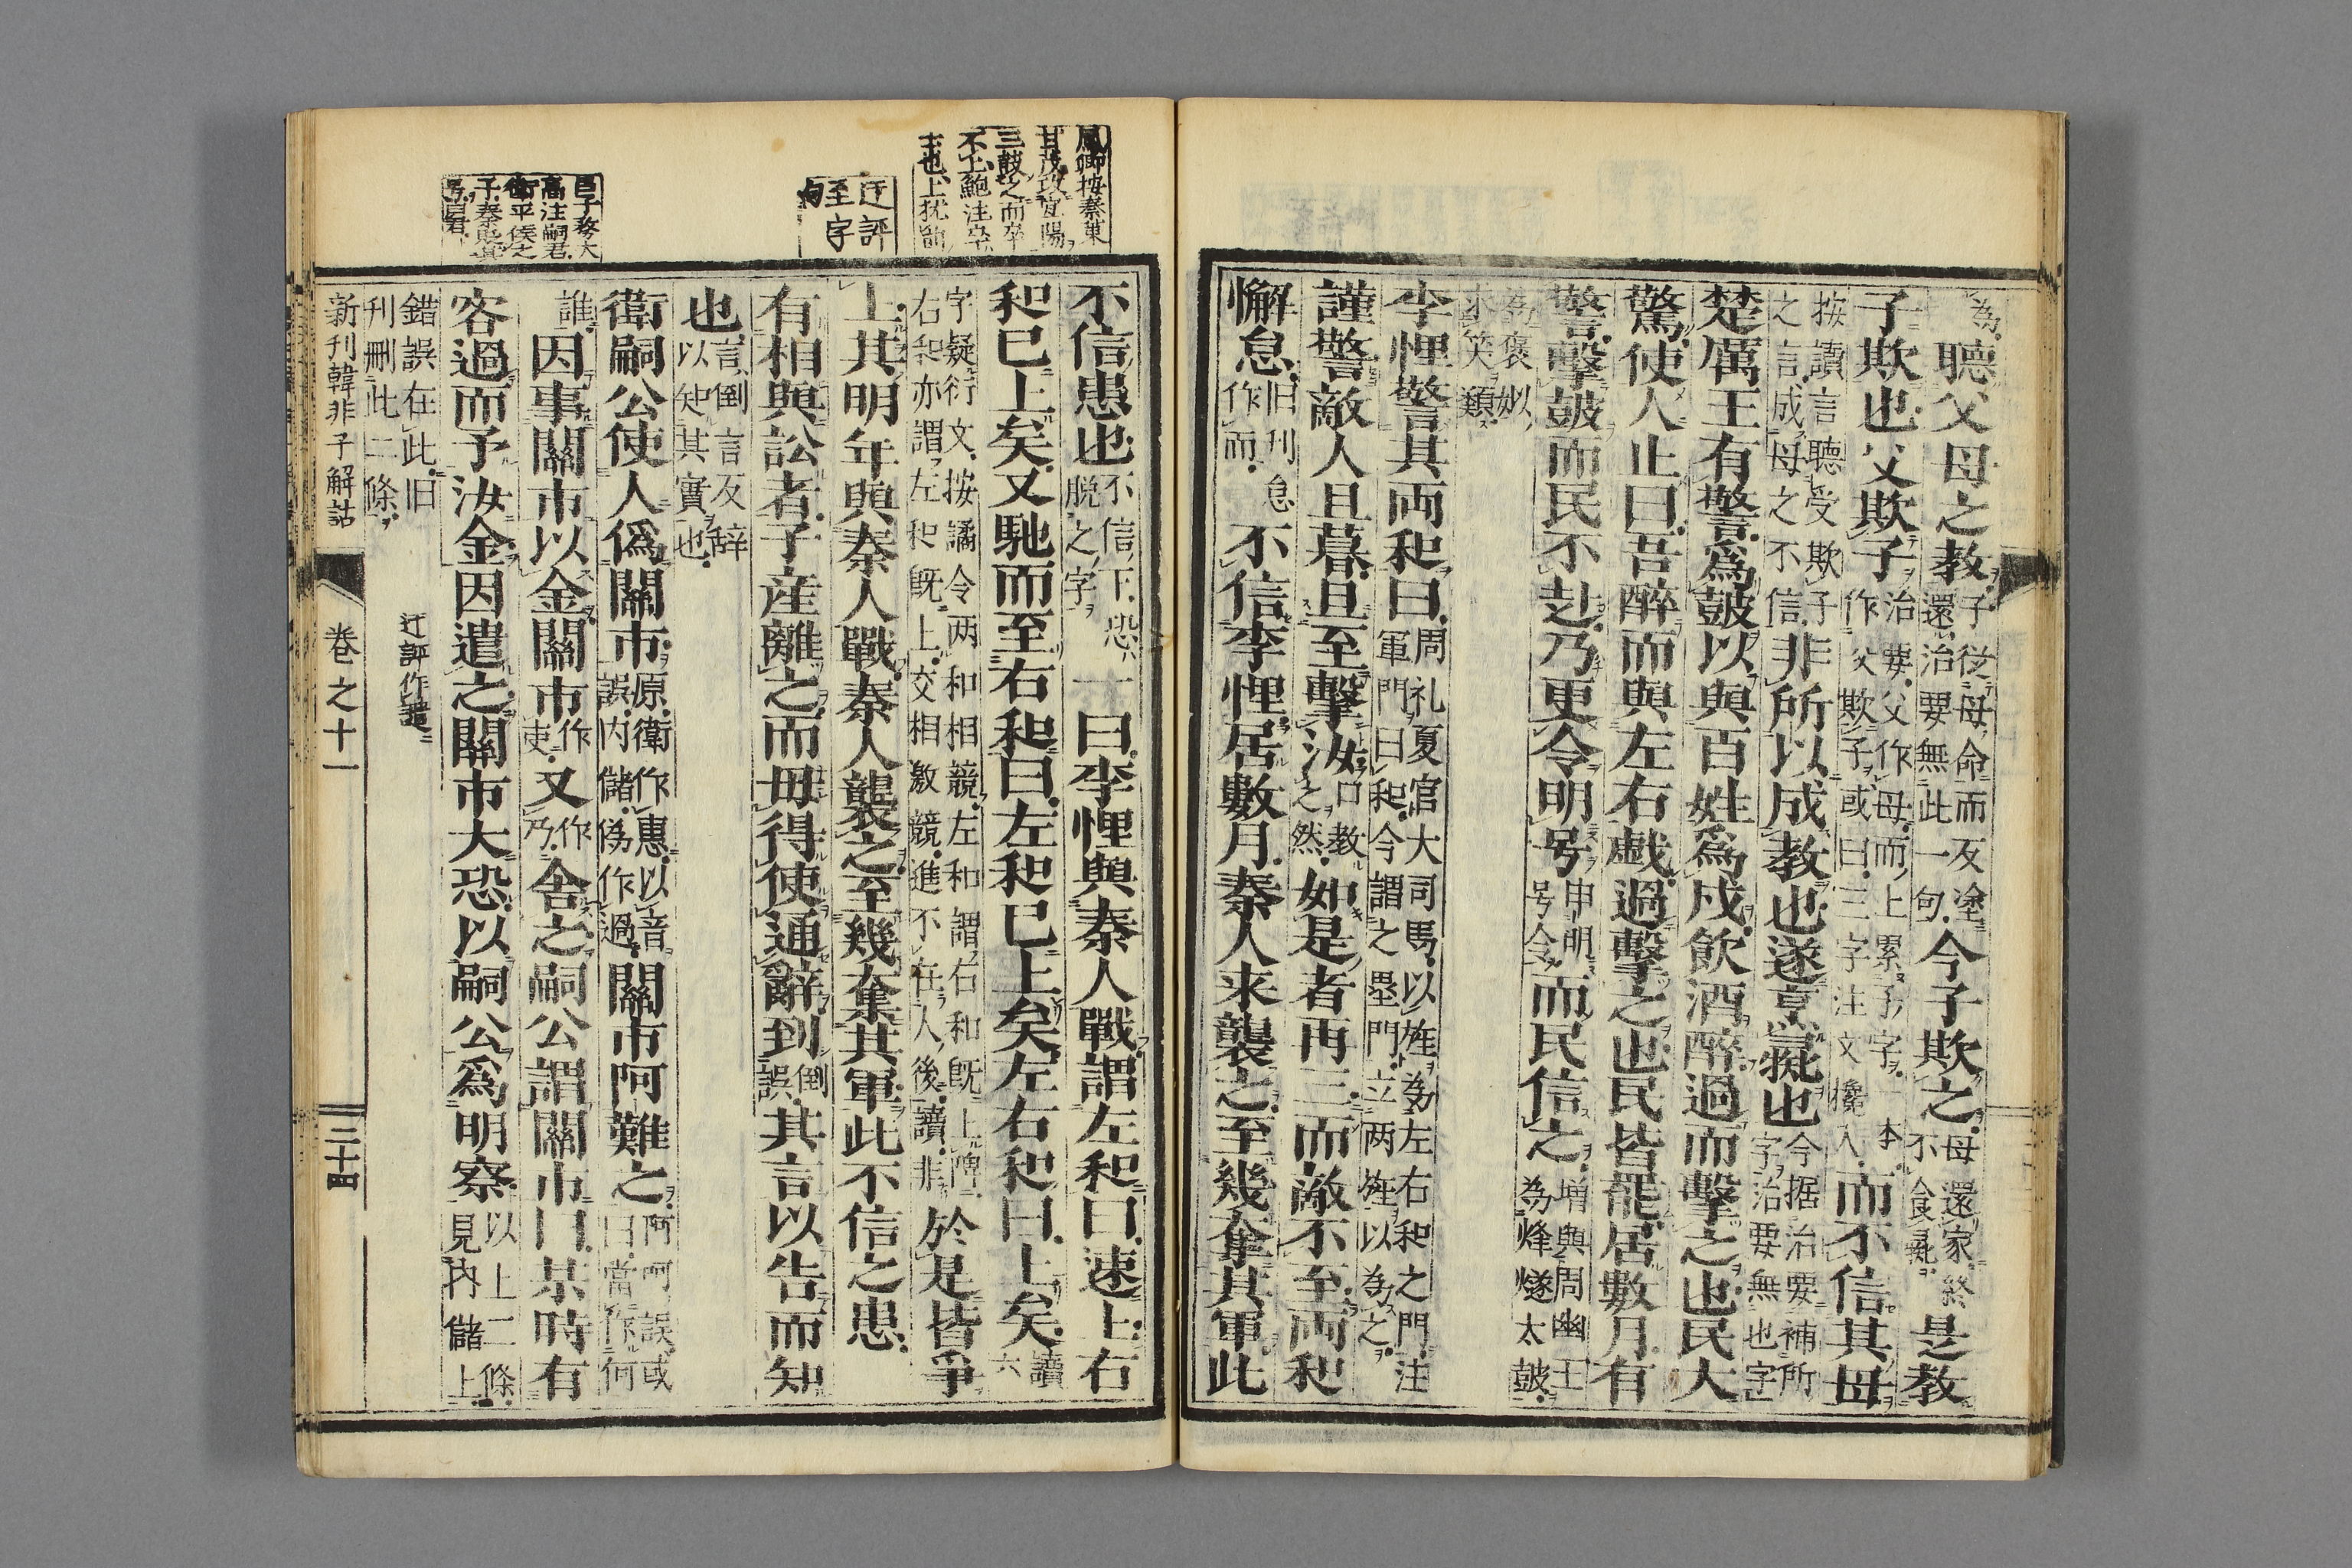 為聽父母之教子從母命而反塗還治要無此一句今子欺之母還家終不食彘是教
子欺也父欺子治要父作母而上累子字一本作父欺子或曰三字注文攙入而不信其母
按讀言聽受欺子之言成母之不信非所以成教也遂亨彘也今据治要補所字治要無也字
楚厲王有警爲鼓以與百姓爲戍飲酒醉過而擊之也民大
驚使人止曰吾醉而與左右戯過擊之也民皆罷居數月有
警擊鼓而民不赴乃更令明号申明号令而民信之増與周幽王為烽燧太鼓
為褒姒求笑類
李悝警其両和曰周礼夏官大司馬以旌為左右和之門注軍門曰和今謂之壘門立両旌以為之
謹警敵人旦暮且至擊汝口教之然如是者再三而敵不至両和
懈怠旧刊怠作而不信李悝居數月秦人来襲之至幾奪其軍此
不信患也不信下恐脱之字一曰李悝與秦人戰謂左和曰速上右
和已上矣又馳而至右和曰左和已上矣左右和曰上矣讀六
字疑衍文按譎令両和相競左和謂右和既上右和亦謂左和既上交相激競進不在人後讀非於是皆爭
上其明年與秦人戰秦人襲之至幾奪其軍此不信之患
有相與訟者子産離之而毋得使通辭到倒誤其言以告而知
也言倒言反辞以知其實也
衛嗣公使人僞關市原衛作惠以音誤内儲僞作過關市呵難之呵呵誤或曰當作何
誰因事關市以金關市作吏又作乃舍之嗣公謂關市曰某時有
客過而予汝金因遣之關市大恐以嗣公爲明察以上二條見内儲上
錯誤在此旧刊刪此二條
迂評作譴
新刊韓非子解詁
卷之十一
三十四
鳳卿按秦策
甘茂攻宜陽
三鼓之而卒
不上鮑注卒
士也上犹前
迂評
至字
句
高注嗣君
衛平侯之
子秦貶其
号曰君